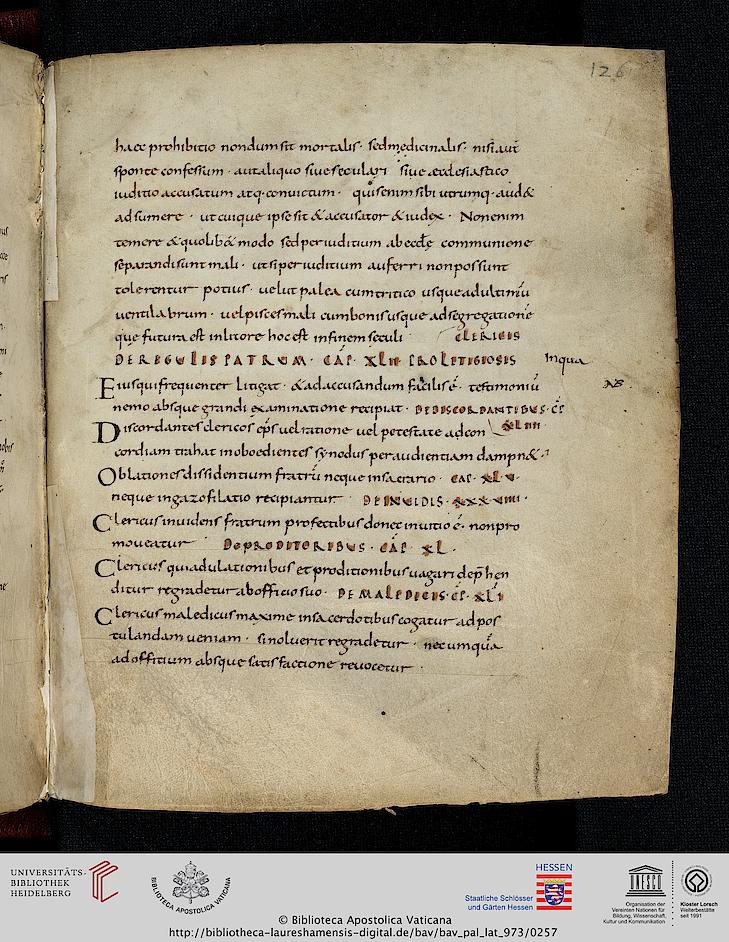 126
haec prohibitio nondum sit mortalis · sed medicinalis · nisi aut
sponte confessum · aut aliquo siue seculari siue aecclesiastico
iuditio accusatum atq· conuictum · quis enim sibi utrumq· aud&
adsumere · ut cuique ipse sit & accusator & iudex · Non enim
temere & quolib& modo sed per iuditium ab eccłę communione
separandi sunt mali · ut si per iuditium auferri non possunt
tolerentur potius · uelut palea cum tritico usque ad ultimū
uentilabrum · uel pisces mali cum bonis usque ad segregationē
que futura est in litore hoc est in finem seculi CLERICIS
DE REGULIS PATRUM · CAP · XLII PRO LITIGIOSIS
Inqua
E ius qui frequenter litigat · & ad accusandum facilis ē · testimoniū
NB
nemo absque grandi examinatione recipiat · DE DISCORDANTIBUS · CP
XLIIII
Discordantes clericos eps uel ratione uel potestate ad con
cordiam trahat inoboedientes synodus per audientiam dampn& ·
Oblationes dissidentium fratrū neque in sacrario · CAP · XLV ·
neque in gazofilatio recipiantur DE INUIDIS ·
Clericus inuidens fratrum profectibus donec in uitio ē · non pro
moueatur DE PRODITORIBUS · CAP · XL ·
Clericus qui adulationibus et proditionibus uagari dep̄hen
ditur regradetur ab officio suo · DE MALEDICIS · CP · XLI
Clericus maledicus maxime in sacerdotibus cogatur ad pos
tulandam ueniam · si noluerit regradetur · nec umquā
ad offitium absque satisfactione reuocetur ·
UNIVERSITÄTS-
BIBLIOTHEK
HEIDELBERG
BIBLIOTECA APOSTOLICA VATICANA
HESSEN
Staatliche Schlösser
und Gärten Hessen
UNESCO
Organisation der
Vereinten Nationen für
Bildung, Wissenschaft,
Kultur und Kommunikation
Kloster Lorsch
Welterbestätte
seit 1991
© Biblioteca Apostolica Vaticana
http://bibliotheca-laureshamensis-digital.de/bav/bav_pal_lat_973/0257